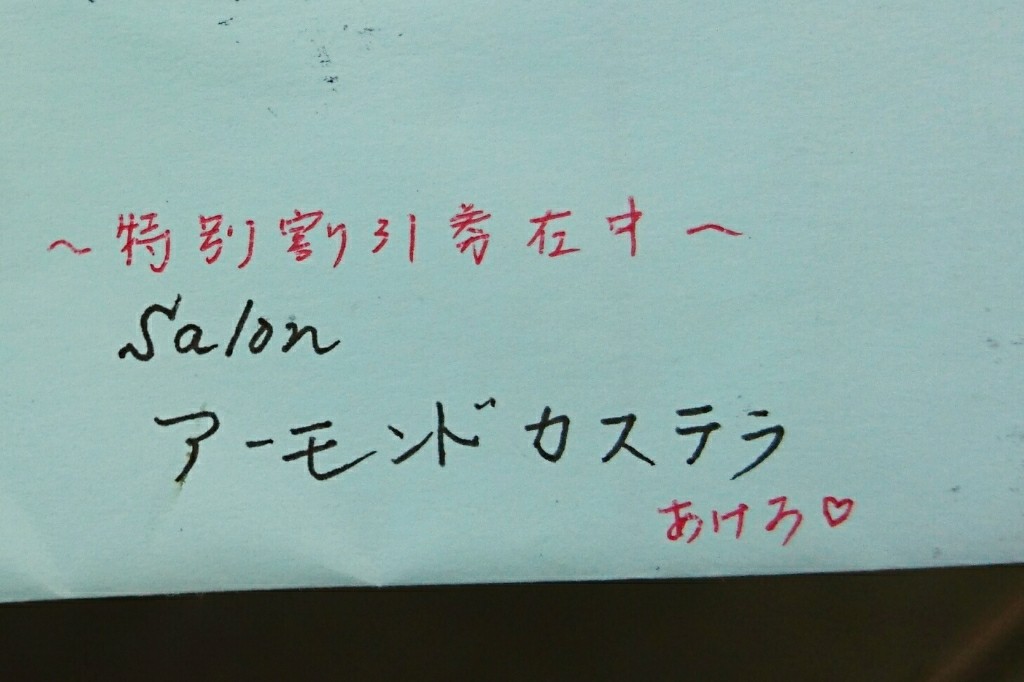 ～特別割引券在中～
Salon
アーモンドカステラ
あけろ♡